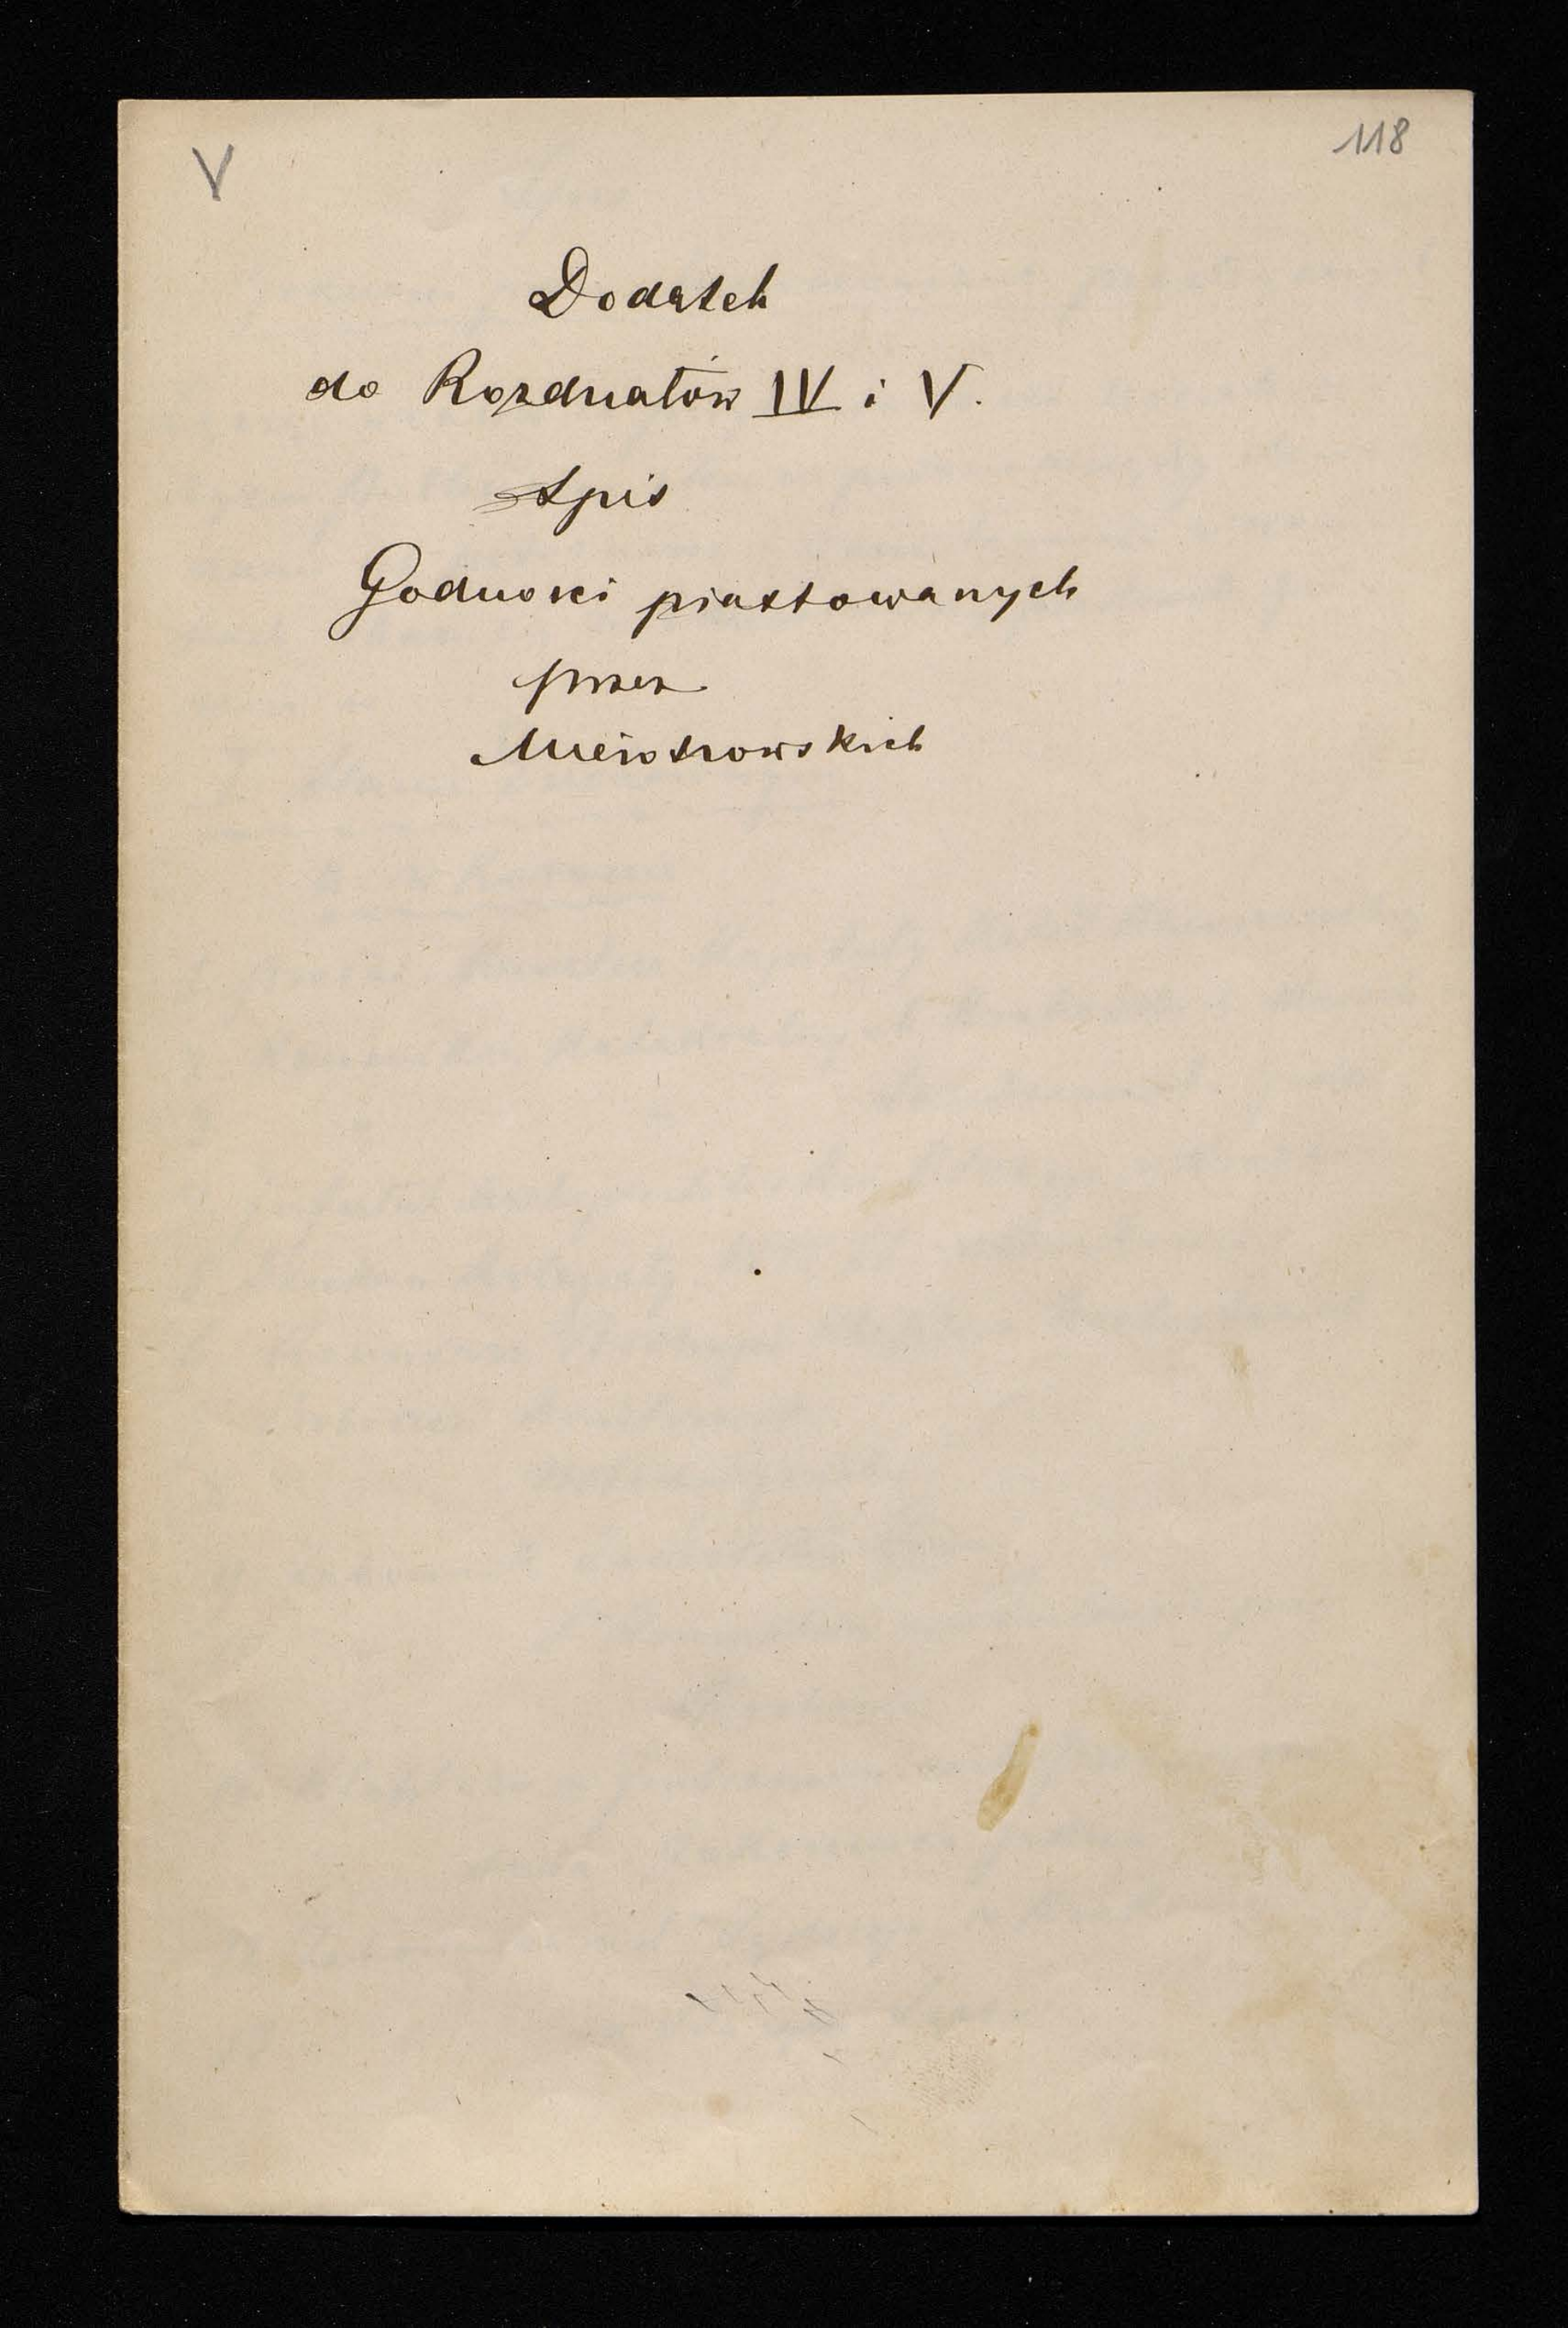 V
118
Dodatek
do Rozdziałów IV i V.
Spis
Godności piastowanych
przez
Mieroszowskich